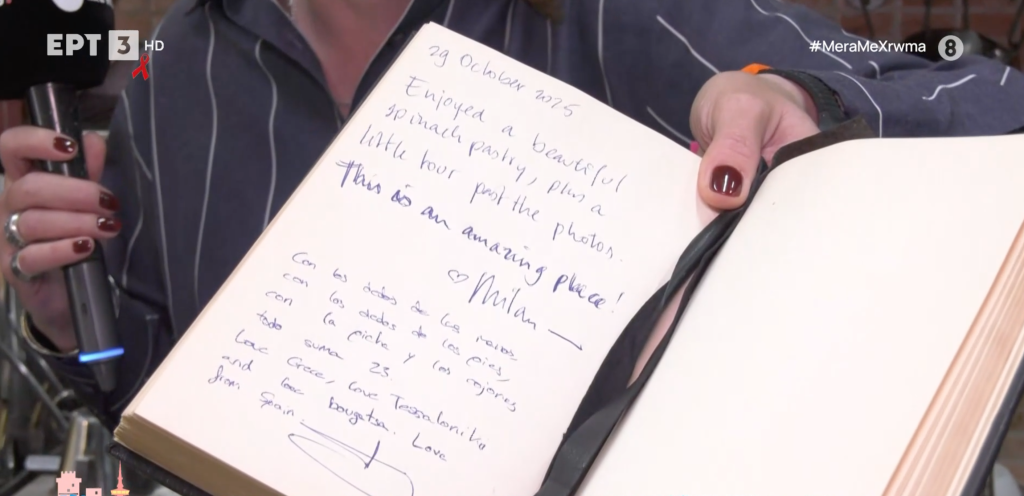 ΕΡΤ 3 HD
#MeraMeXrwma 8
29 October 2025
Enjoyed a beautiful
spinach pastry, plus a
little tour past the photos.
This is an amazing place!
♡ Milan
Con los dedos de las manos
con los dedos de los pies,
con la picha y los cojones
todo suma 23.
Love Grece, love Tessalonika
and love bougatsa. Love
from Spain